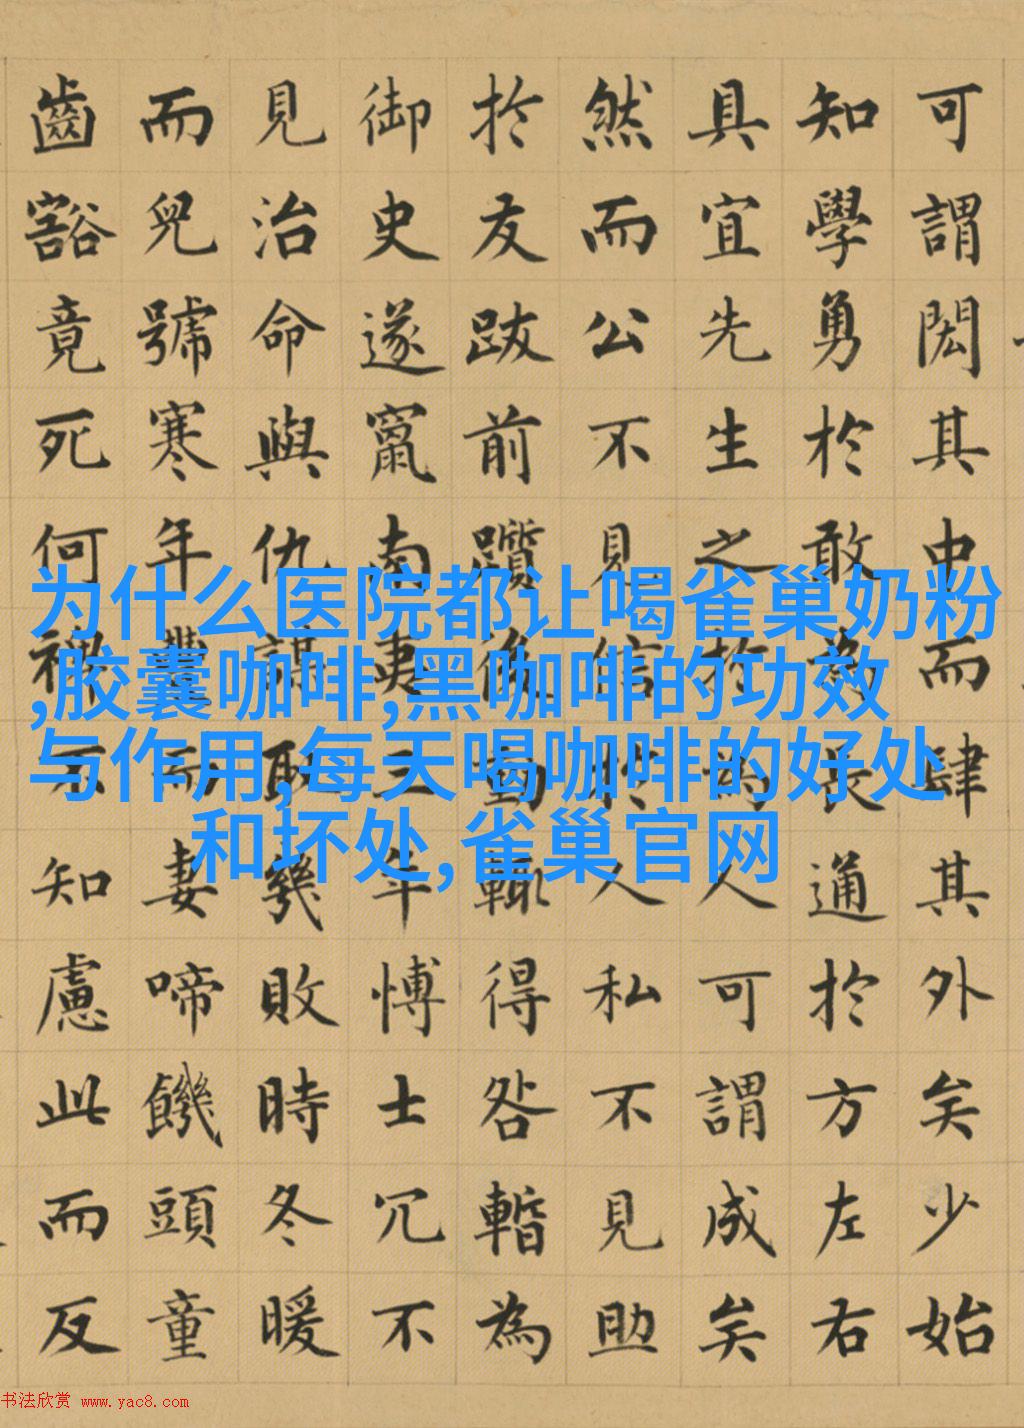 可謂閎其中而肆其外矣少始
知學勇於敢為長通於方左右
具宜先生之於為人可謂成矣
然而公不見信於人私不見助
於友跋前躓後動輒得咎暫為
御史遂竄南夷三年愽士冗不
見治命與仇謀取幾敗時冬暖
而兒號寒年豐而妻啼饑頭童
齒豁竟死何裨不知慮此而反
为什么医院都让喝雀巢奶粉
,胶囊咖啡,黑咖啡的功效
与作用,每天喝咖啡的好处
和坏处,雀巢官网
书法欣赏 www.yac8.com